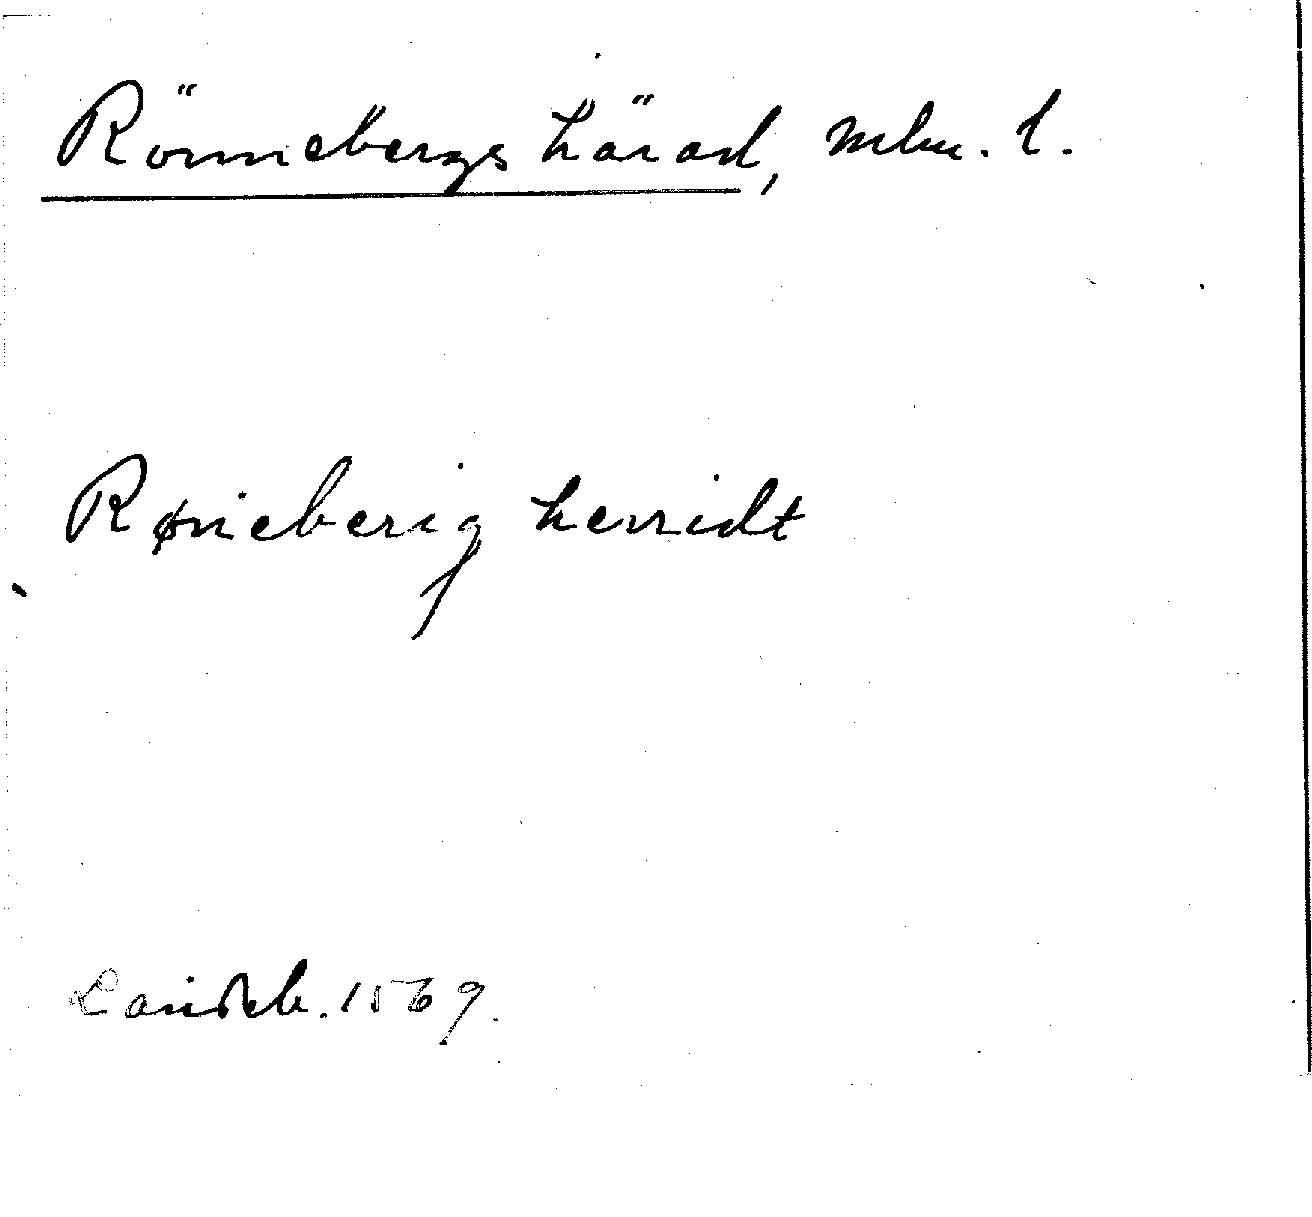 Rönnebergs härad, Mlm. l.
Røneberig herridt
Landeb. 1569.